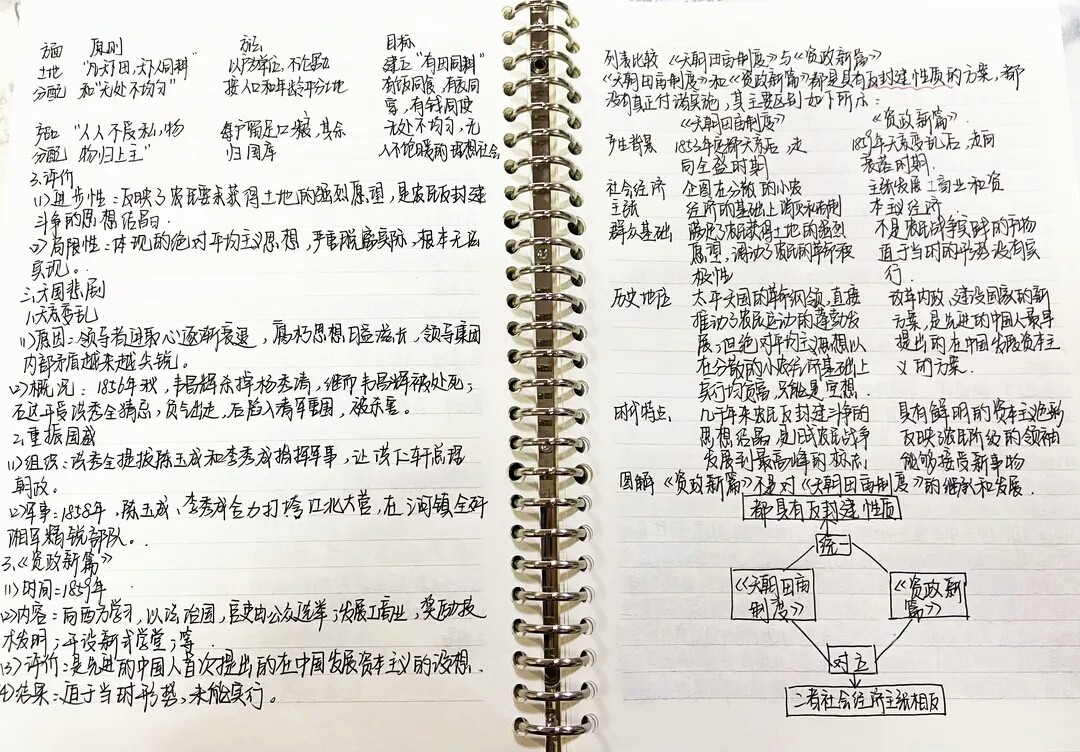 方面 原则 方法 目标
土地 "凡天下田,天下人同耕" 以户为单位,不论男女 建立"有田同耕
分配 和"无处不均匀" 按人口和年龄平分土地 有饭同食,有衣同
穿,有钱同使
产品 "人人不受私,物 每户留足口粮,其余 无处不均匀,无
分配 物归上主" 归国库 人不饱暖"的理想社会
3.评价
(1)进步性:反映了农民要求获得土地的强烈愿望,是农民反封建
斗争的思想结晶。
(2)局限性:体现的绝对平均主义思想,严重脱离实际,根本无法
实现。
三、天国悲剧
1.天京变乱
(1)原因:领导者进取心逐渐衰退,腐朽思想日益滋长,领导集团
内部矛盾越来越尖锐。
(2)概况:1856年秋,韦昌辉杀掉杨秀清,继而韦昌辉被处死;
石达开受洪秀全猜忌,负气出走,后陷入清军重围,被杀害。
2.重振国威
(1)组织:洪秀全提拔陈玉成和李秀成指挥军事,让洪仁玕总理
朝政。
(2)军事:1858年,陈玉成、李秀成合力打垮江北大营,在三河镇全歼
湘军精锐部队。
3.《资政新篇》
(1)时间:1859年
(2)内容:向西方学习,以法治国,官吏由公众选举;发展工商业,奖励技
术发明;开设新式学堂;等
(3)评价:是先进的中国人首次提出的在中国发展资本主义的设想。
(4)结果:迫于当时形势,未能实行。
列表比较《天朝田亩制度》与《资政新篇》
《天朝田亩制度》和《资政新篇》都是具有反封建性质的方案,都
没有真正付诸实施,其主要区别如下所示:
《天朝田亩制度》 《资政新篇》
产生背景 1853年定都天京后,走 1859年天京变乱后,走向
向全盛时期 衰落时期.
社会经济 企图在分散的小农 主张发展工商业和资
主张 经济的基础上 本主义经济
群众基础 农民获得土地的强烈 不是农民战争实践的产物
愿望,调动了农民的革命积 迫于当时的形势没有实
极性 行.
历史地位 太平天国的革命纲领,直接 改革内政、建设国家的新
推动了农民运动的蓬勃发 方案,是先进的中国人最早
展;但绝对平均主义思想以 提出的在中国发展资本主
在分散的小农经济基础上 义的方案.
实行均贫富,只能是空想.
时代特点 几千年来农民反封建斗争的 具有鲜明的资本主义色彩
思想结晶,是旧式农民战争 反映农民阶级的领袖
发展到最高峰的标志 能够接受新事物
图解《资政新篇》不是对《天朝田亩制度》的继承和发展.
都具有反封建性质
统一
《天朝田亩 《资政新
制度》 篇》
对立
二者社会经济主张相反